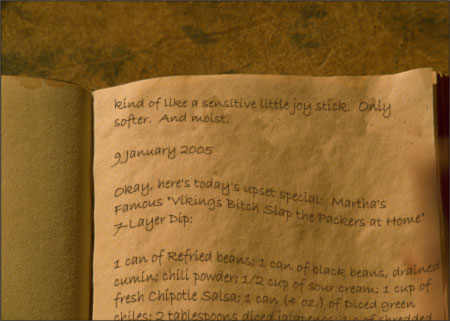 kind of like a sensitive little joy stick.  Only
softer.  And moist.
9 January 2005
Okay, here's today's upset special:  Martha's
Famous "Vikings Bitch Slap the Packers at Home"
7-Layer Dip:
1 can of Refried beans; 1 can of black beans, drained
cumin; chili powder; 1/2 cup of sour cream; 1 cup of
fresh Chipotle Salsa; 1 can (4 oz.) of Diced green
chiles; 2 tablespoons diced jalapenos; 1 c of shredded